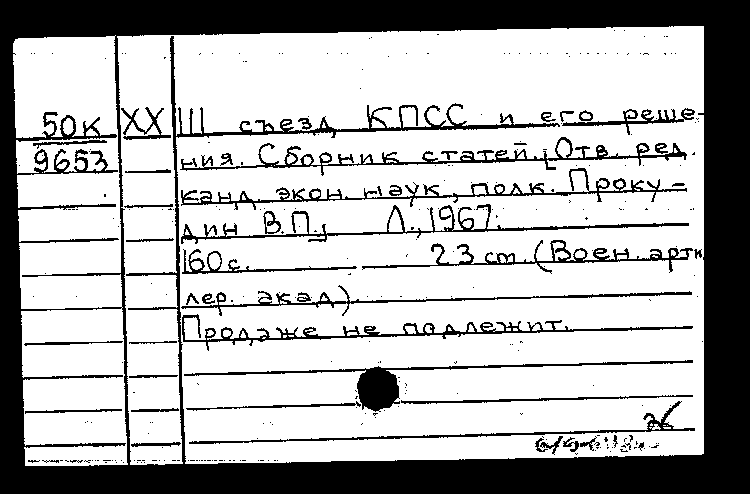 50к XXIII съезд КПСС и его реше-
9653 ния. Сборник статей. [Отв. ред.
канд. экон. наук, полк. Проку-
дин В.П.] Л., 1967.
160 с. 23 cm. (Воен. арти
лер. акад).
Продаже не подлежит.
Ж